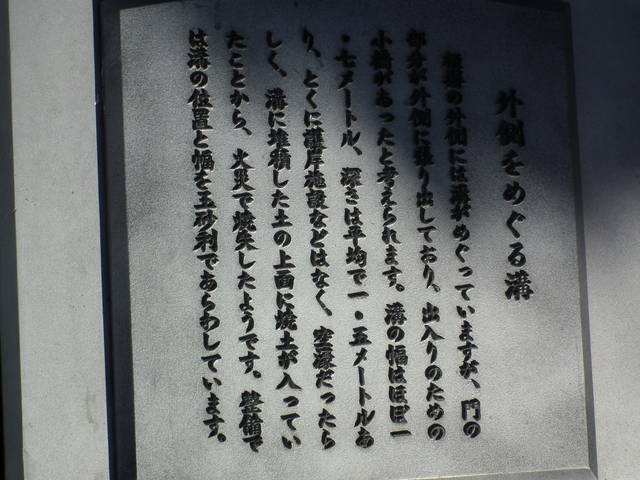 外側をめぐる溝
板塀の外側には溝がめぐっていますが、門の
部分が外側に張り出しており、出入りのための
小橋があったと考えられます。溝の幅はほぼ一
・七メートル、深さは平均で一・五メートルあ
り、とくに護岸施設などはなく、空濠だったら
しく、溝に堆積した土の上面に焼土が入ってい
たことから、火災で焼失したようです。整備で
は溝の位置と幅を玉砂利であらわしています。